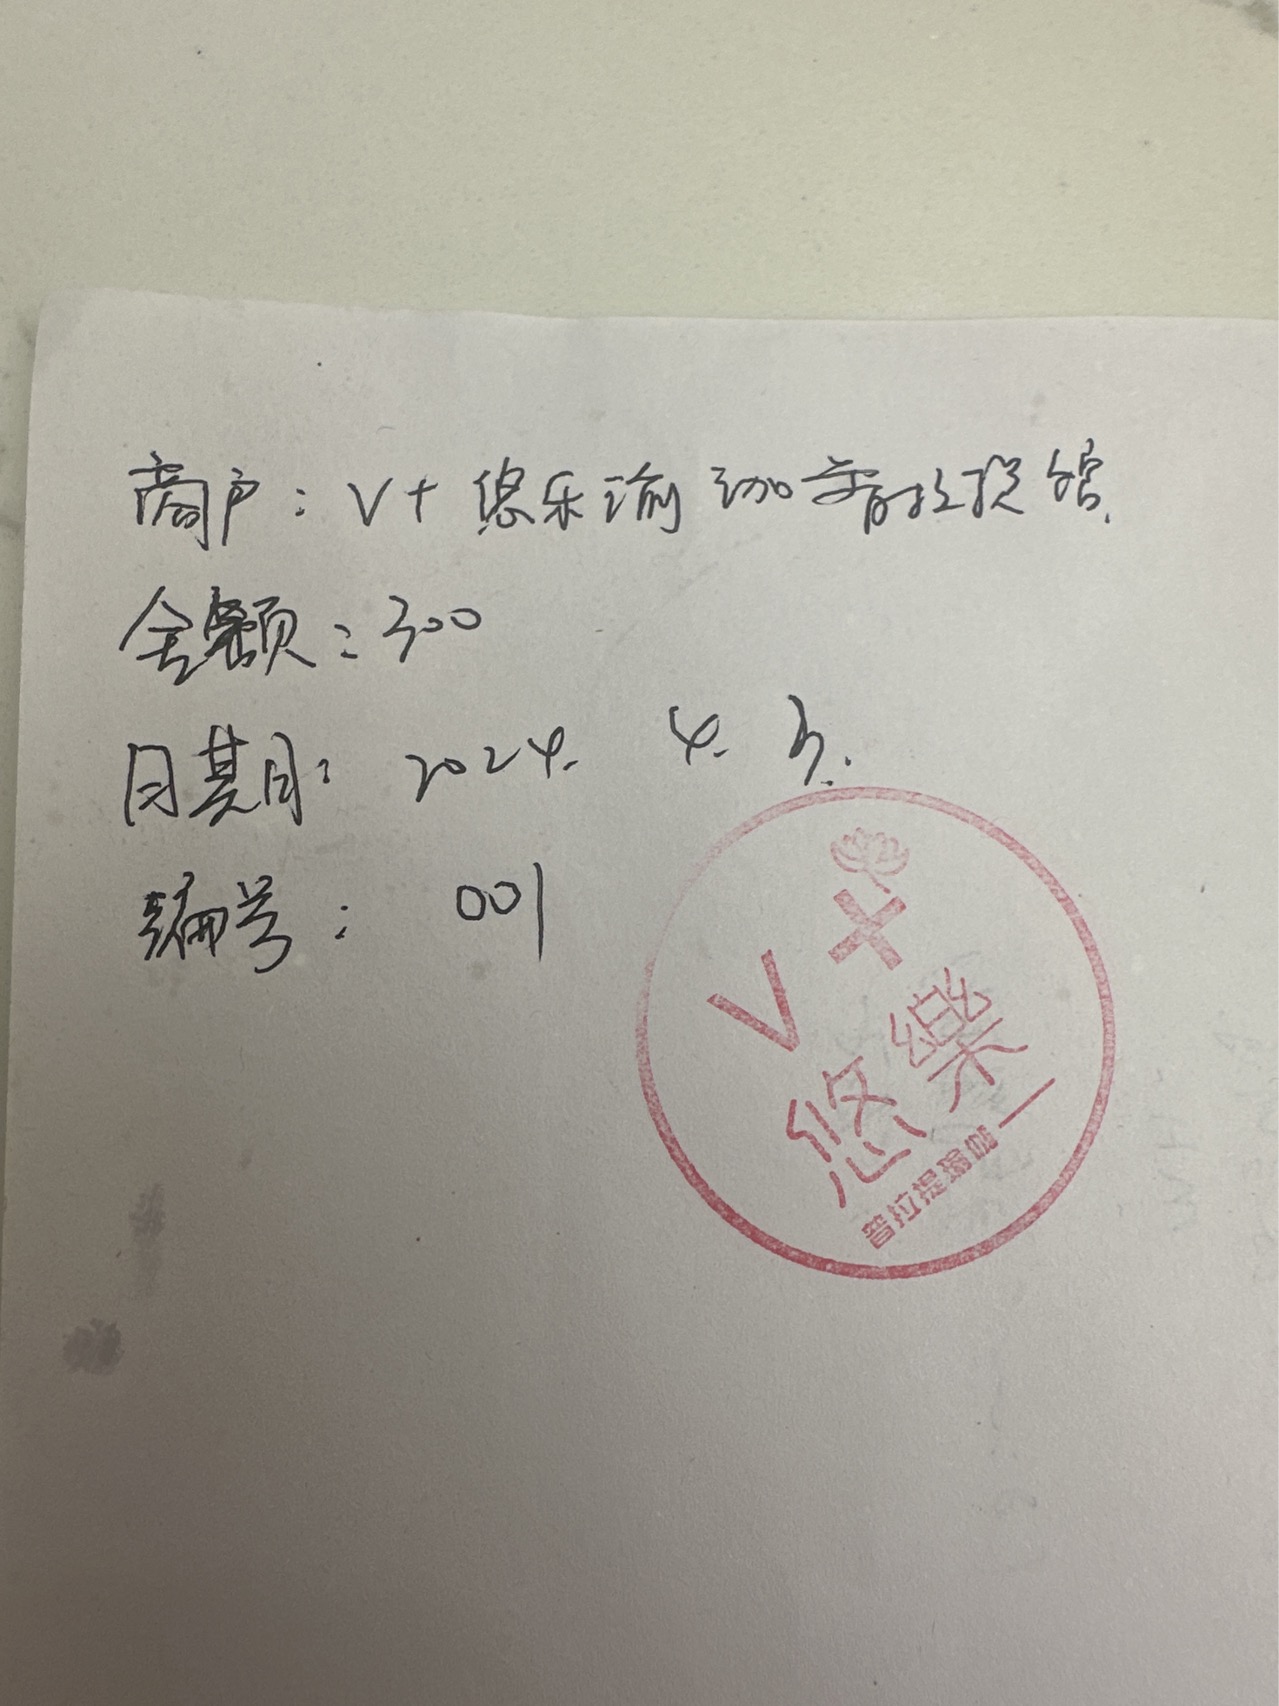 商户：V+悠乐瑜珈普拉提馆.
金额：300
日期：2024. 4. 3.
编号：001
V+
悠樂
普拉提瑜伽